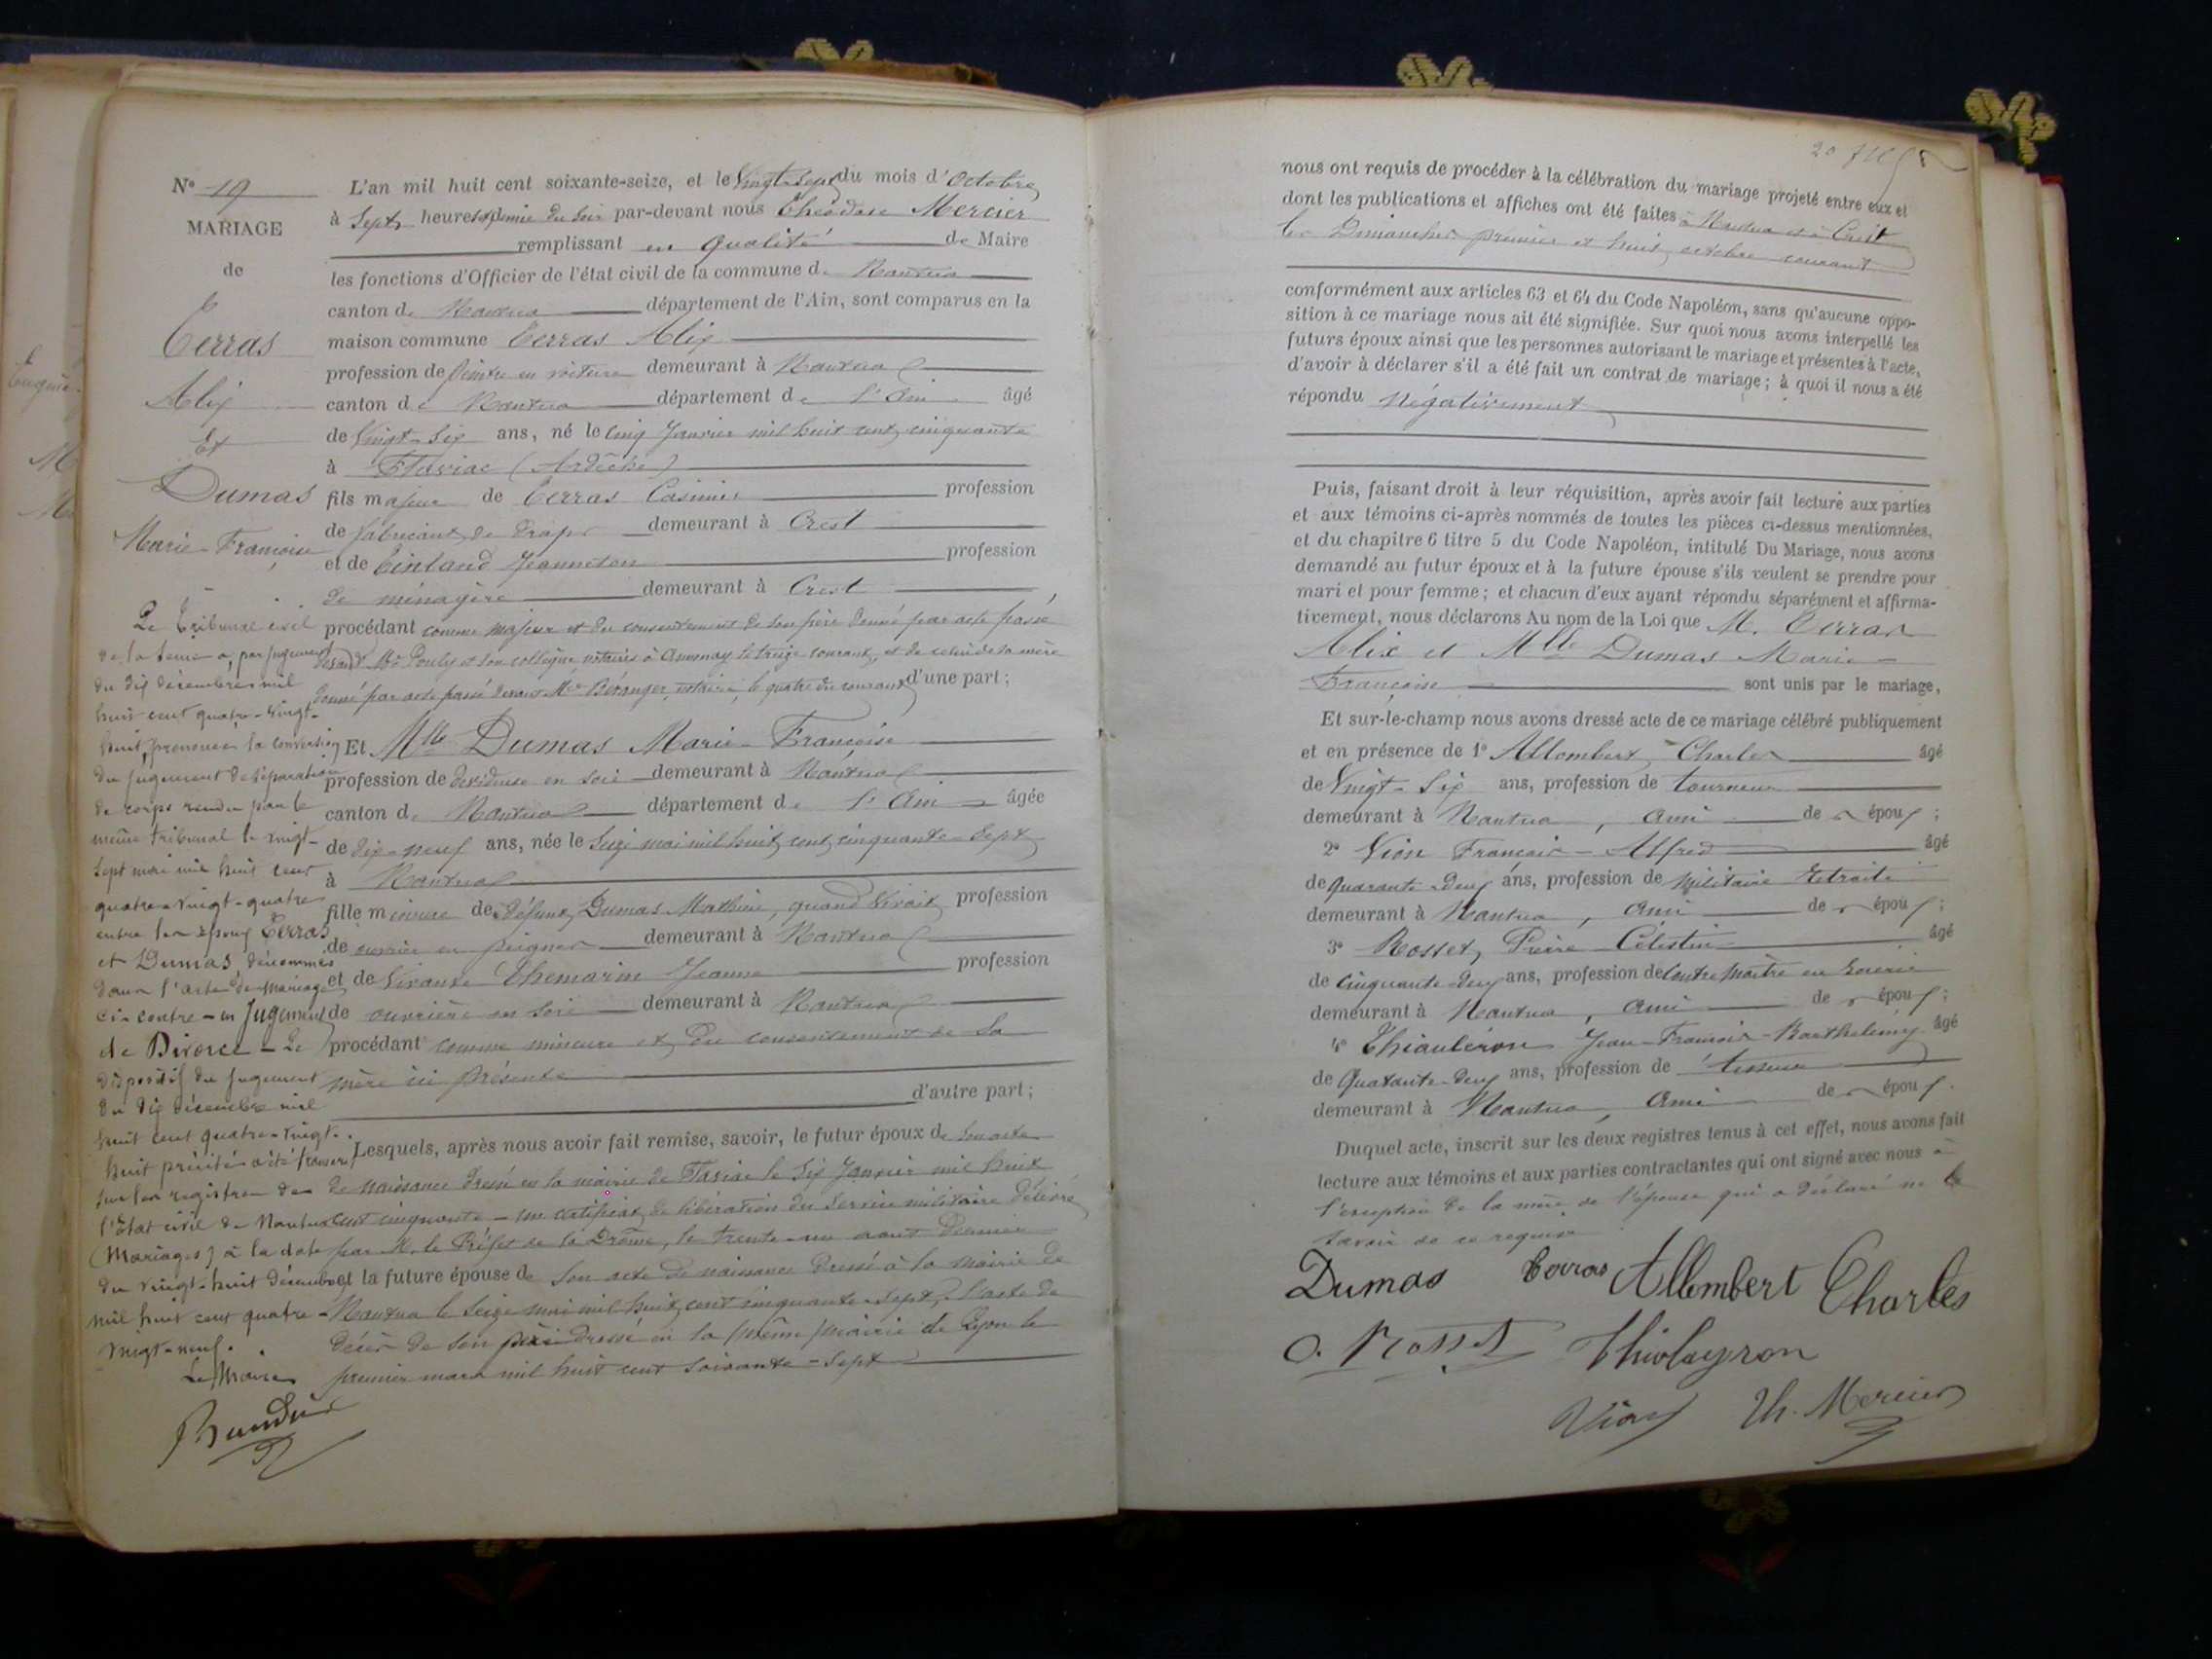 Nº 19
MARIAGE
de
Terras
Alix
Et
Dumas
Marie-Françoise
Le Tribunal civil
de la Seine a, par jugement
du dix décembre mil
huit cent quatre-vingt-
huit, prononcé la conversion
du jugement de séparation
de corps rendu par le
même tribunal le vingt-
sept mai mil huit cent
quatre-vingt-quatre
entre les époux Terras
et Dumas, dénommés
dans l'acte de mariage
ci-contre - en Jugement
de Divorce - Le
dispositif du jugement
du dix décembre mil
huit cent quatre-vingt-
huit précité a été transcrit
sur les registres de
l'Etat civil de Nantua
(Mariages) à la date
du vingt-huit décembre
mil huit cent quatre-
vingt-neuf.
Le Maire
L'an mil huit cent soixante-seize, et le Vingt-Sept du mois d'Octobre
à Sept heures et demie du soir par-devant nous Théodore Mercier
remplissant en qualité de Maire
les fonctions d'Officier de l'état civil de la commune de Nantua
canton de Nantua département de l'Ain, sont comparus en la
maison commune Terras Alix
profession de peintre en voiture demeurant à Nantua
canton de Nantua département de l'Ain âgé
de Vingt-Six ans, né le cinq Janvier mil huit cent cinquante
à Flaviac (Ardèche)
fils majeur de Terras Casimir profession
de fabricant de draps demeurant à Crest
et de Jeanneton profession
de ménagère demeurant à Crest
procédant comme majeur et du consentement de son père donné par acte passé
devant Me Pouly et son collègue notaires à Annonay le treize courant, et de celui de sa mère
donné par acte passé devant Me Béranger, notaire, le quatre du courant d'une part;
Et Mlle Dumas Marie-Françoise
profession de dévideuse en soie demeurant à Nantua
canton de Nantua département de l'Ain âgée
de dix-neuf ans, née le Seize mai mil huit cent cinquante-Sept
à Nantua
fille mineure de défunt Dumas Mathieu, quand vivait profession
de ouvrier en peignes demeurant à Nantua
et de vivante Themarin Jeanne profession
de ouvrière en soie demeurant à Nantua
procédant comme mineure et du consentement de sa
mère ici présente
d'autre part;
Lesquels, après nous avoir fait remise, savoir, le futur époux de son acte
de naissance dressé en la mairie de Flaviac le six Janvier mil huit
cent cinquante - un certificat de libération du service militaire délivré
par M. le Préfet de la Drôme, le trente-un aout dernier
et la future épouse de son acte de naissance dressé à la mairie de
Nantua le Seize mai mil huit cent cinquante-Sept, l'acte de
décès de son père dressé en la mairie de Lyon le
premier mars mil huit cent soixante-sept
nous ont requis de procéder à la célébration du mariage projeté entre eux et
dont les publications et affiches ont été faites à Nantua et à Crest
les Dimanches premier et huit octobre courant
conformément aux articles 63 et 64 du Code Napoléon, sans qu'aucune oppo-
sition à ce mariage nous ait été signifiée. Sur quoi nous avons interpellé les
futurs époux ainsi que les personnes autorisant le mariage et présentes à l'acte,
d'avoir à déclarer s'il a été fait un contrat de mariage; à quoi il nous a été
répondu négativement
Puis, faisant droit à leur réquisition, après avoir fait lecture aux parties
et aux témoins ci-après nommés de toutes les pièces ci-dessus mentionnées,
et du chapitre 6 titre 5 du Code Napoléon, intitulé Du Mariage, nous avons
demandé au futur époux et à la future épouse s'ils veulent se prendre pour
mari et pour femme; et chacun d'eux ayant répondu séparément et affirma-
tivement, nous déclarons Au nom de la Loi que M. Terras
Alix et Mlle Dumas Marie-
Françoise sont unis par le mariage,
Et sur-le-champ nous avons dressé acte de ce mariage célébré publiquement
et en présence de 1º Allombert Charles âgé
de Vingt-Six ans, profession de tourneur
demeurant à Nantua, ami de époux;
2º Vion François-Alfred âgé
de quarante-deux ans, profession de Militaire retraité
demeurant à Nantua, ami de époux;
3º Rosset, Pierre Célestin âgé
de cinquante-deux ans, profession de Contremaître en soierie
demeurant à Nantua, ami de époux;
4º Thiauléron Jean-François-Barthelemy âgé
de Quarante-deux ans, profession de tisseur
demeurant à Nantua, ami de époux.
Duquel acte, inscrit sur les deux registres tenus à cet effet, nous avons fait
lecture aux témoins et aux parties contractantes qui ont signé avec nous à
l'exception de la mère de l'épouse qui a déclaré ne le
savoir de ce requise
Dumas Terras Allombert Charles
Rosset Thiolayron
Vion Th. Mercier